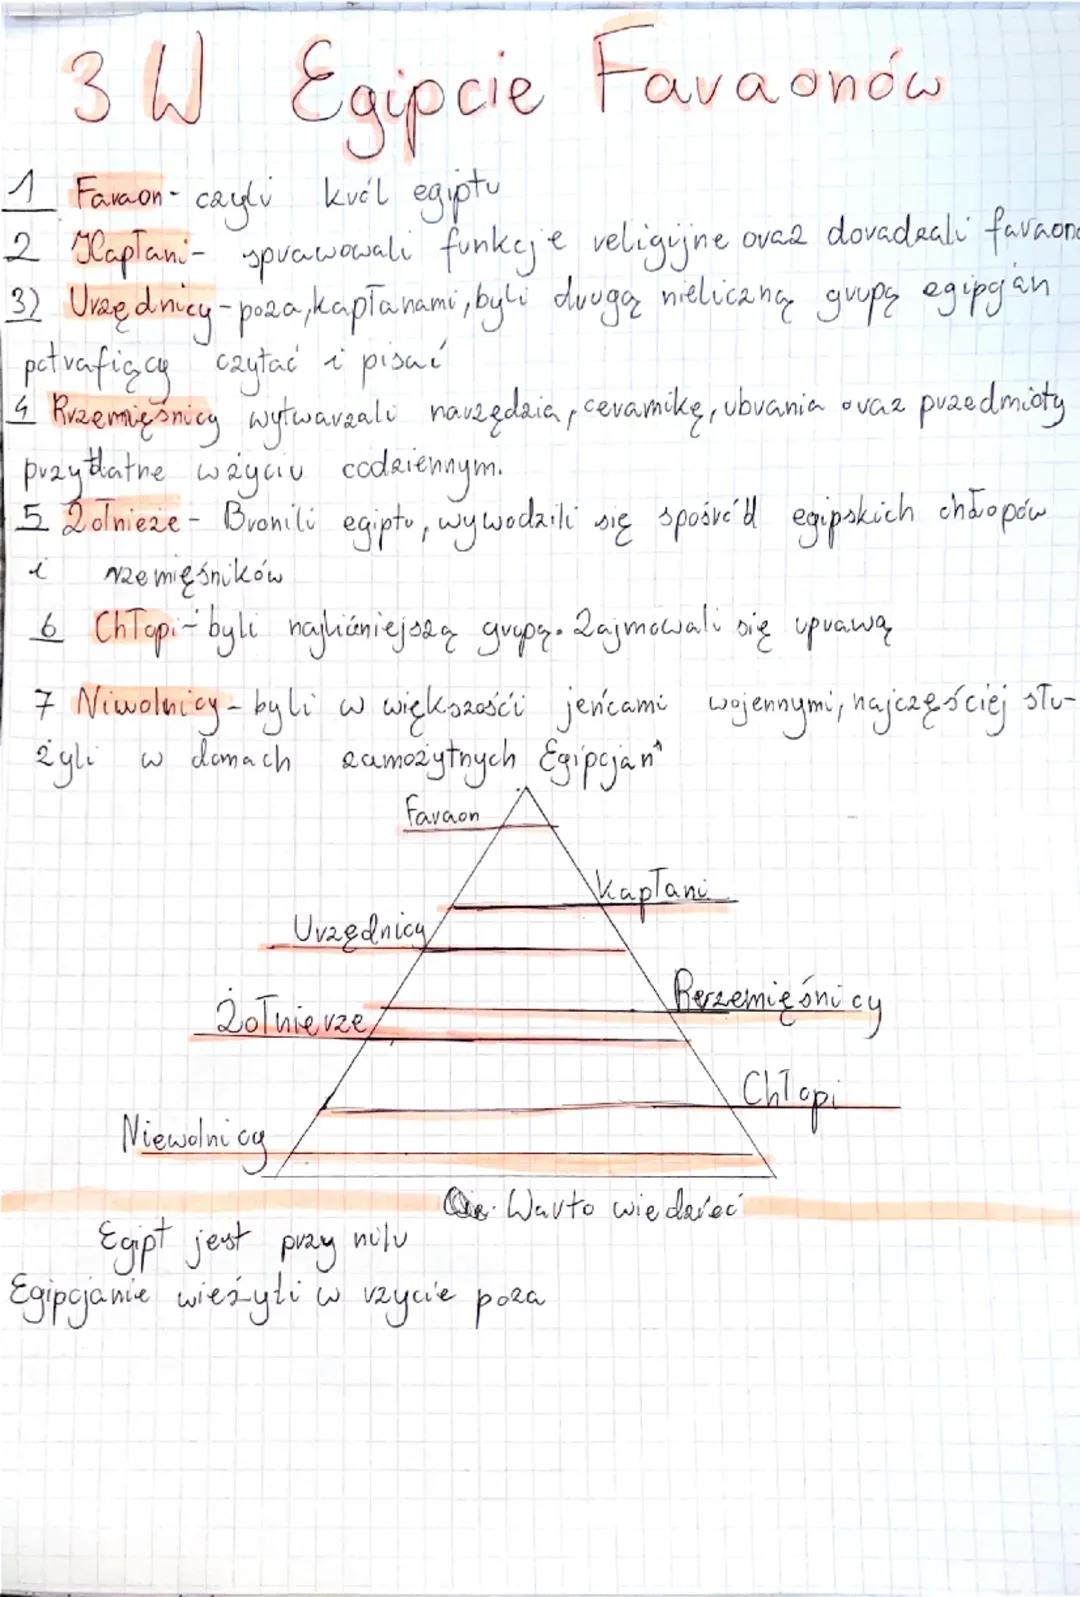 3 W Egipcie Faraonów
1 Faraon - czyli król egiptu
2 Kapłani - sprawowali funkcje religijne oraz doradzali faraono
3) Urzędnicy - poza, kapłanami, byli drugą nieliczną grupą egipcjan
potrafiący czytać i pisać
4 Rrzemięśnicy wytwarzali narzędzia, ceramikę, ubrania oraz przedmioty
przydatne w życiu codziennym.
5 Żołnieże - Bronili egiptu, wywodzili się spośród egipskich chłopów
i rzemięśników
6 Chłopi - byli najliczniejszą grupą. Zajmowali się uprawą
7 Niwolnicy - byli w większości jeńcami wojennymi, najczęściej słu-
żyli w domach zamożytnych Egipcjan
Faraon
Kapłani
Urzędnicy
Rzemięśnicy
Żołnierze
Chłopi
Niewolnicy
Warto wiedzieć
Egipt jest przy nilu
Egipcjanie wieżyli w rzycie poza